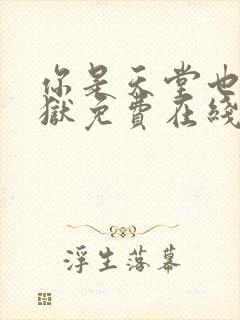 你是天堂也
獄免費在綫
浮生落幕